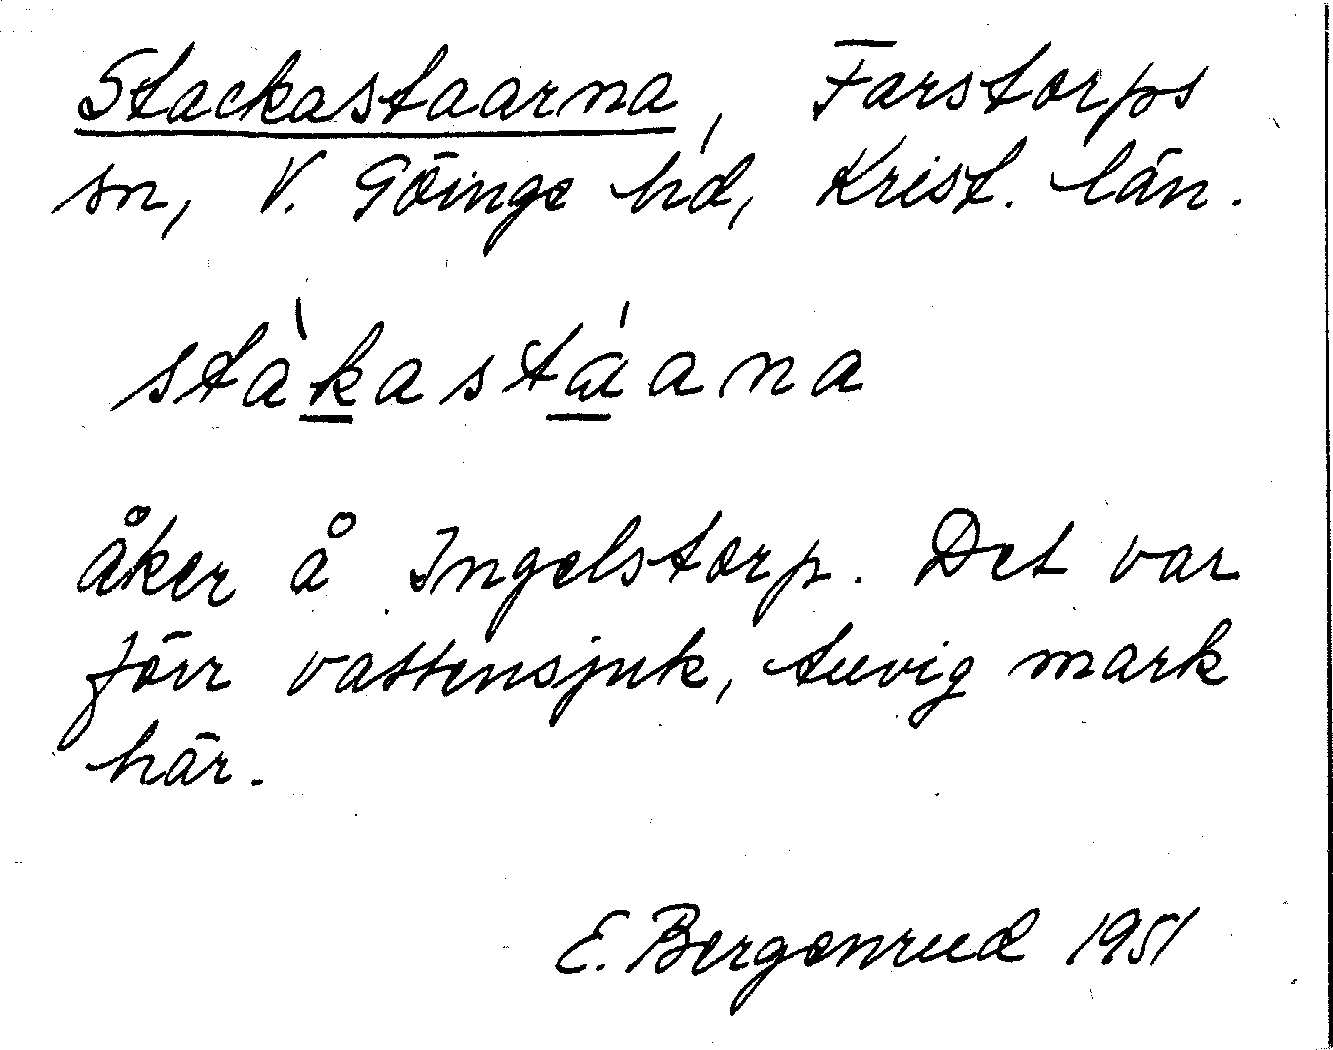 Stackastaarna, Farstorps
sn, V. Göinge hd, Krist. län.
stàkastáana
åker å Ingelstorp. Det var
förr vattensjuk, tuvig mark
här.
E. Bergenrud 1951